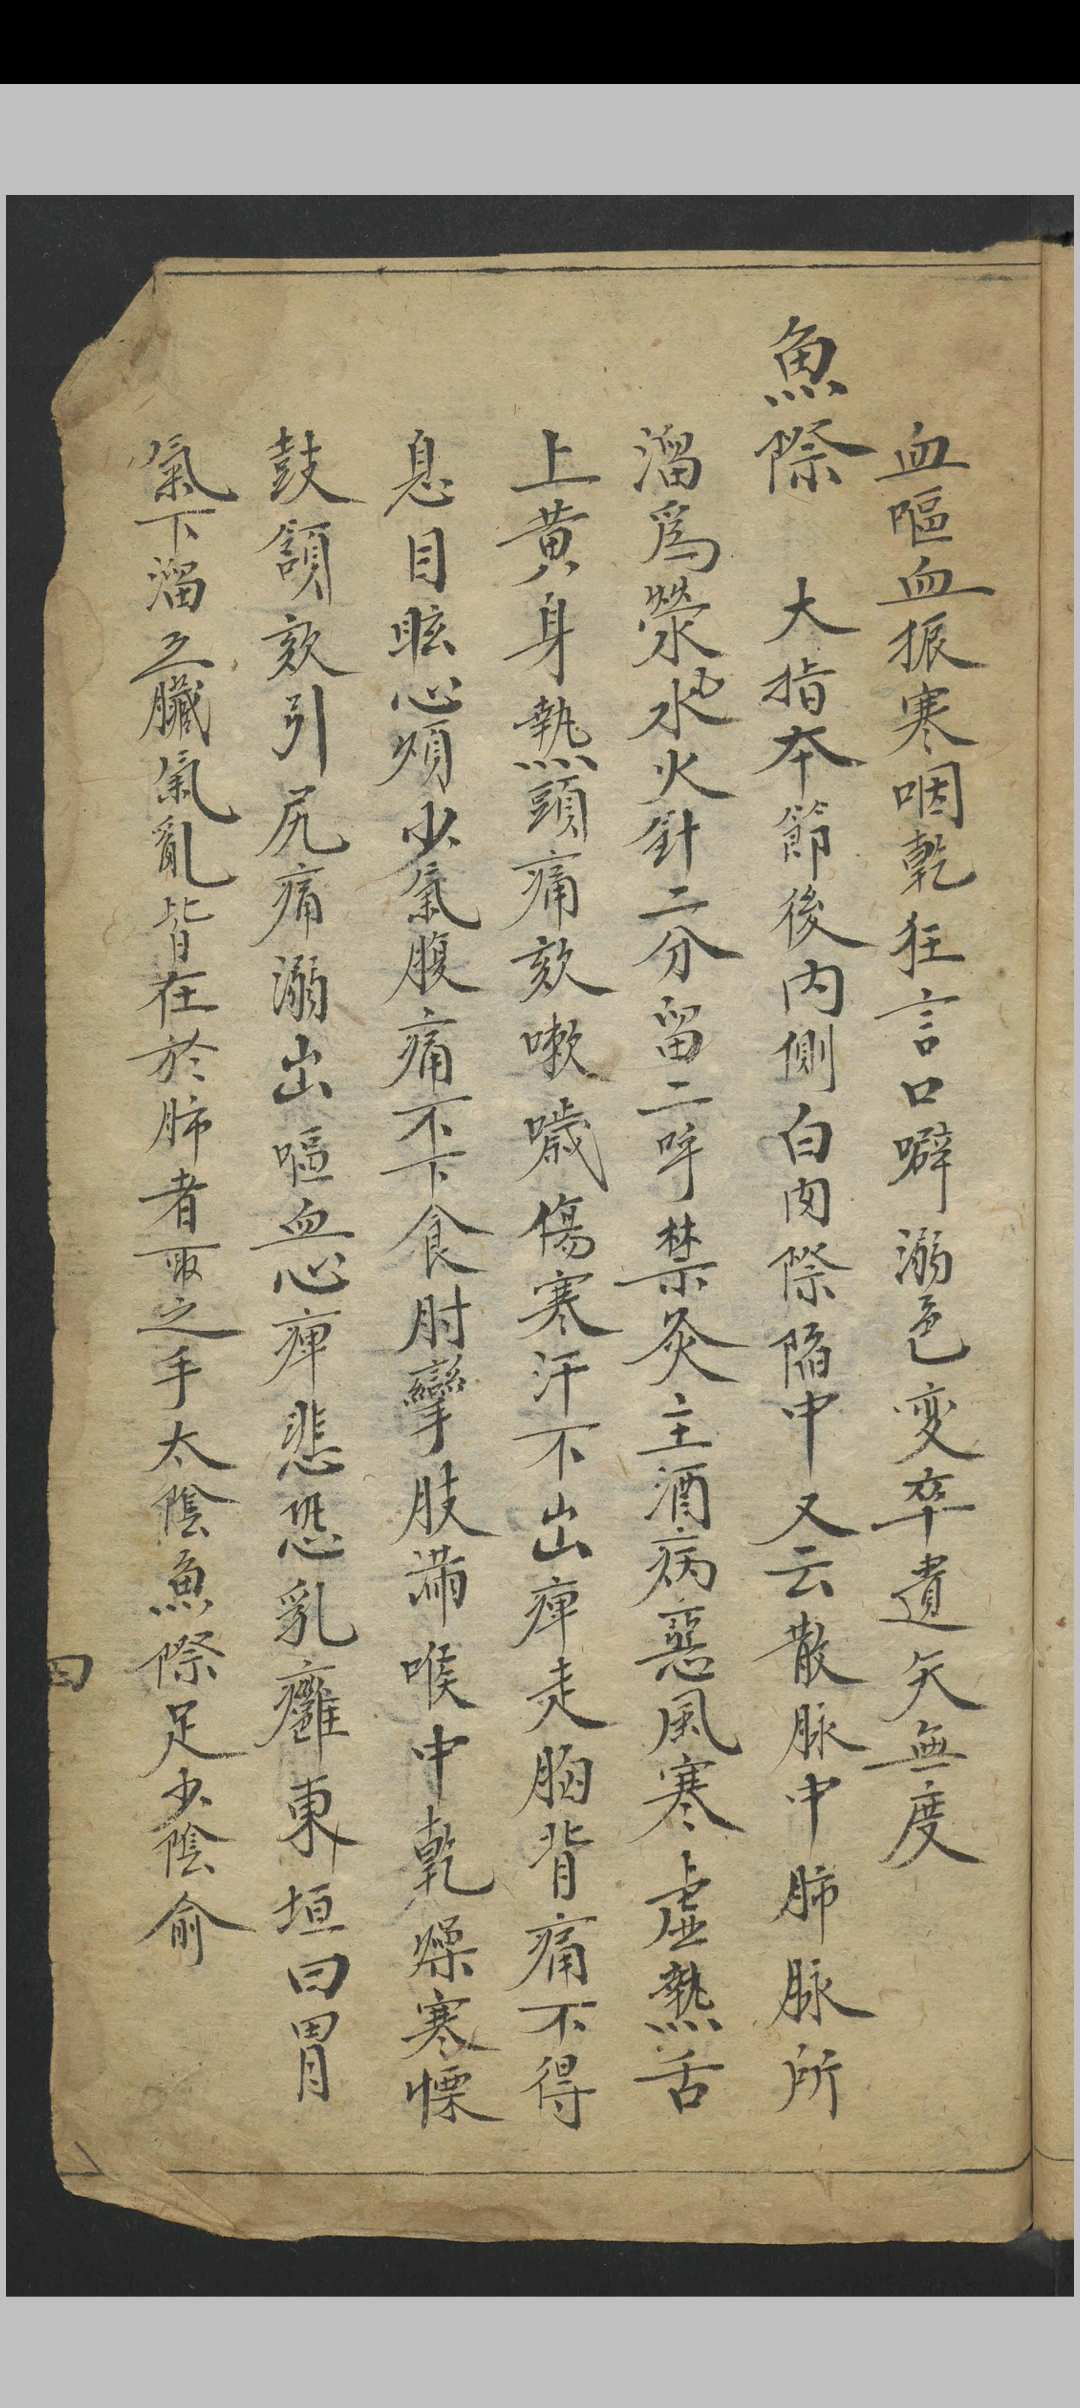 血嘔血振寒咽乾狂言口噼溺色变卒遺矢無度
魚際 大指本節後内側白肉際陷中又云散脉中肺脉所
溜爲滎水火針二分留二呼禁灸主酒病惡風寒虚熱舌
上黄身熱頭痛欬嗽噦傷寒汗不出痺走胸背痛不得
息目眩心煩少氣腹痛不下食肘攣肢滿喉中乾燥寒慄
鼓頷欬引尻痛溺出嘔血心痺悲恐乳癰東垣曰胃
氣下溜五臟氣亂皆在於肺者取之手太陰魚際足少陰俞
四